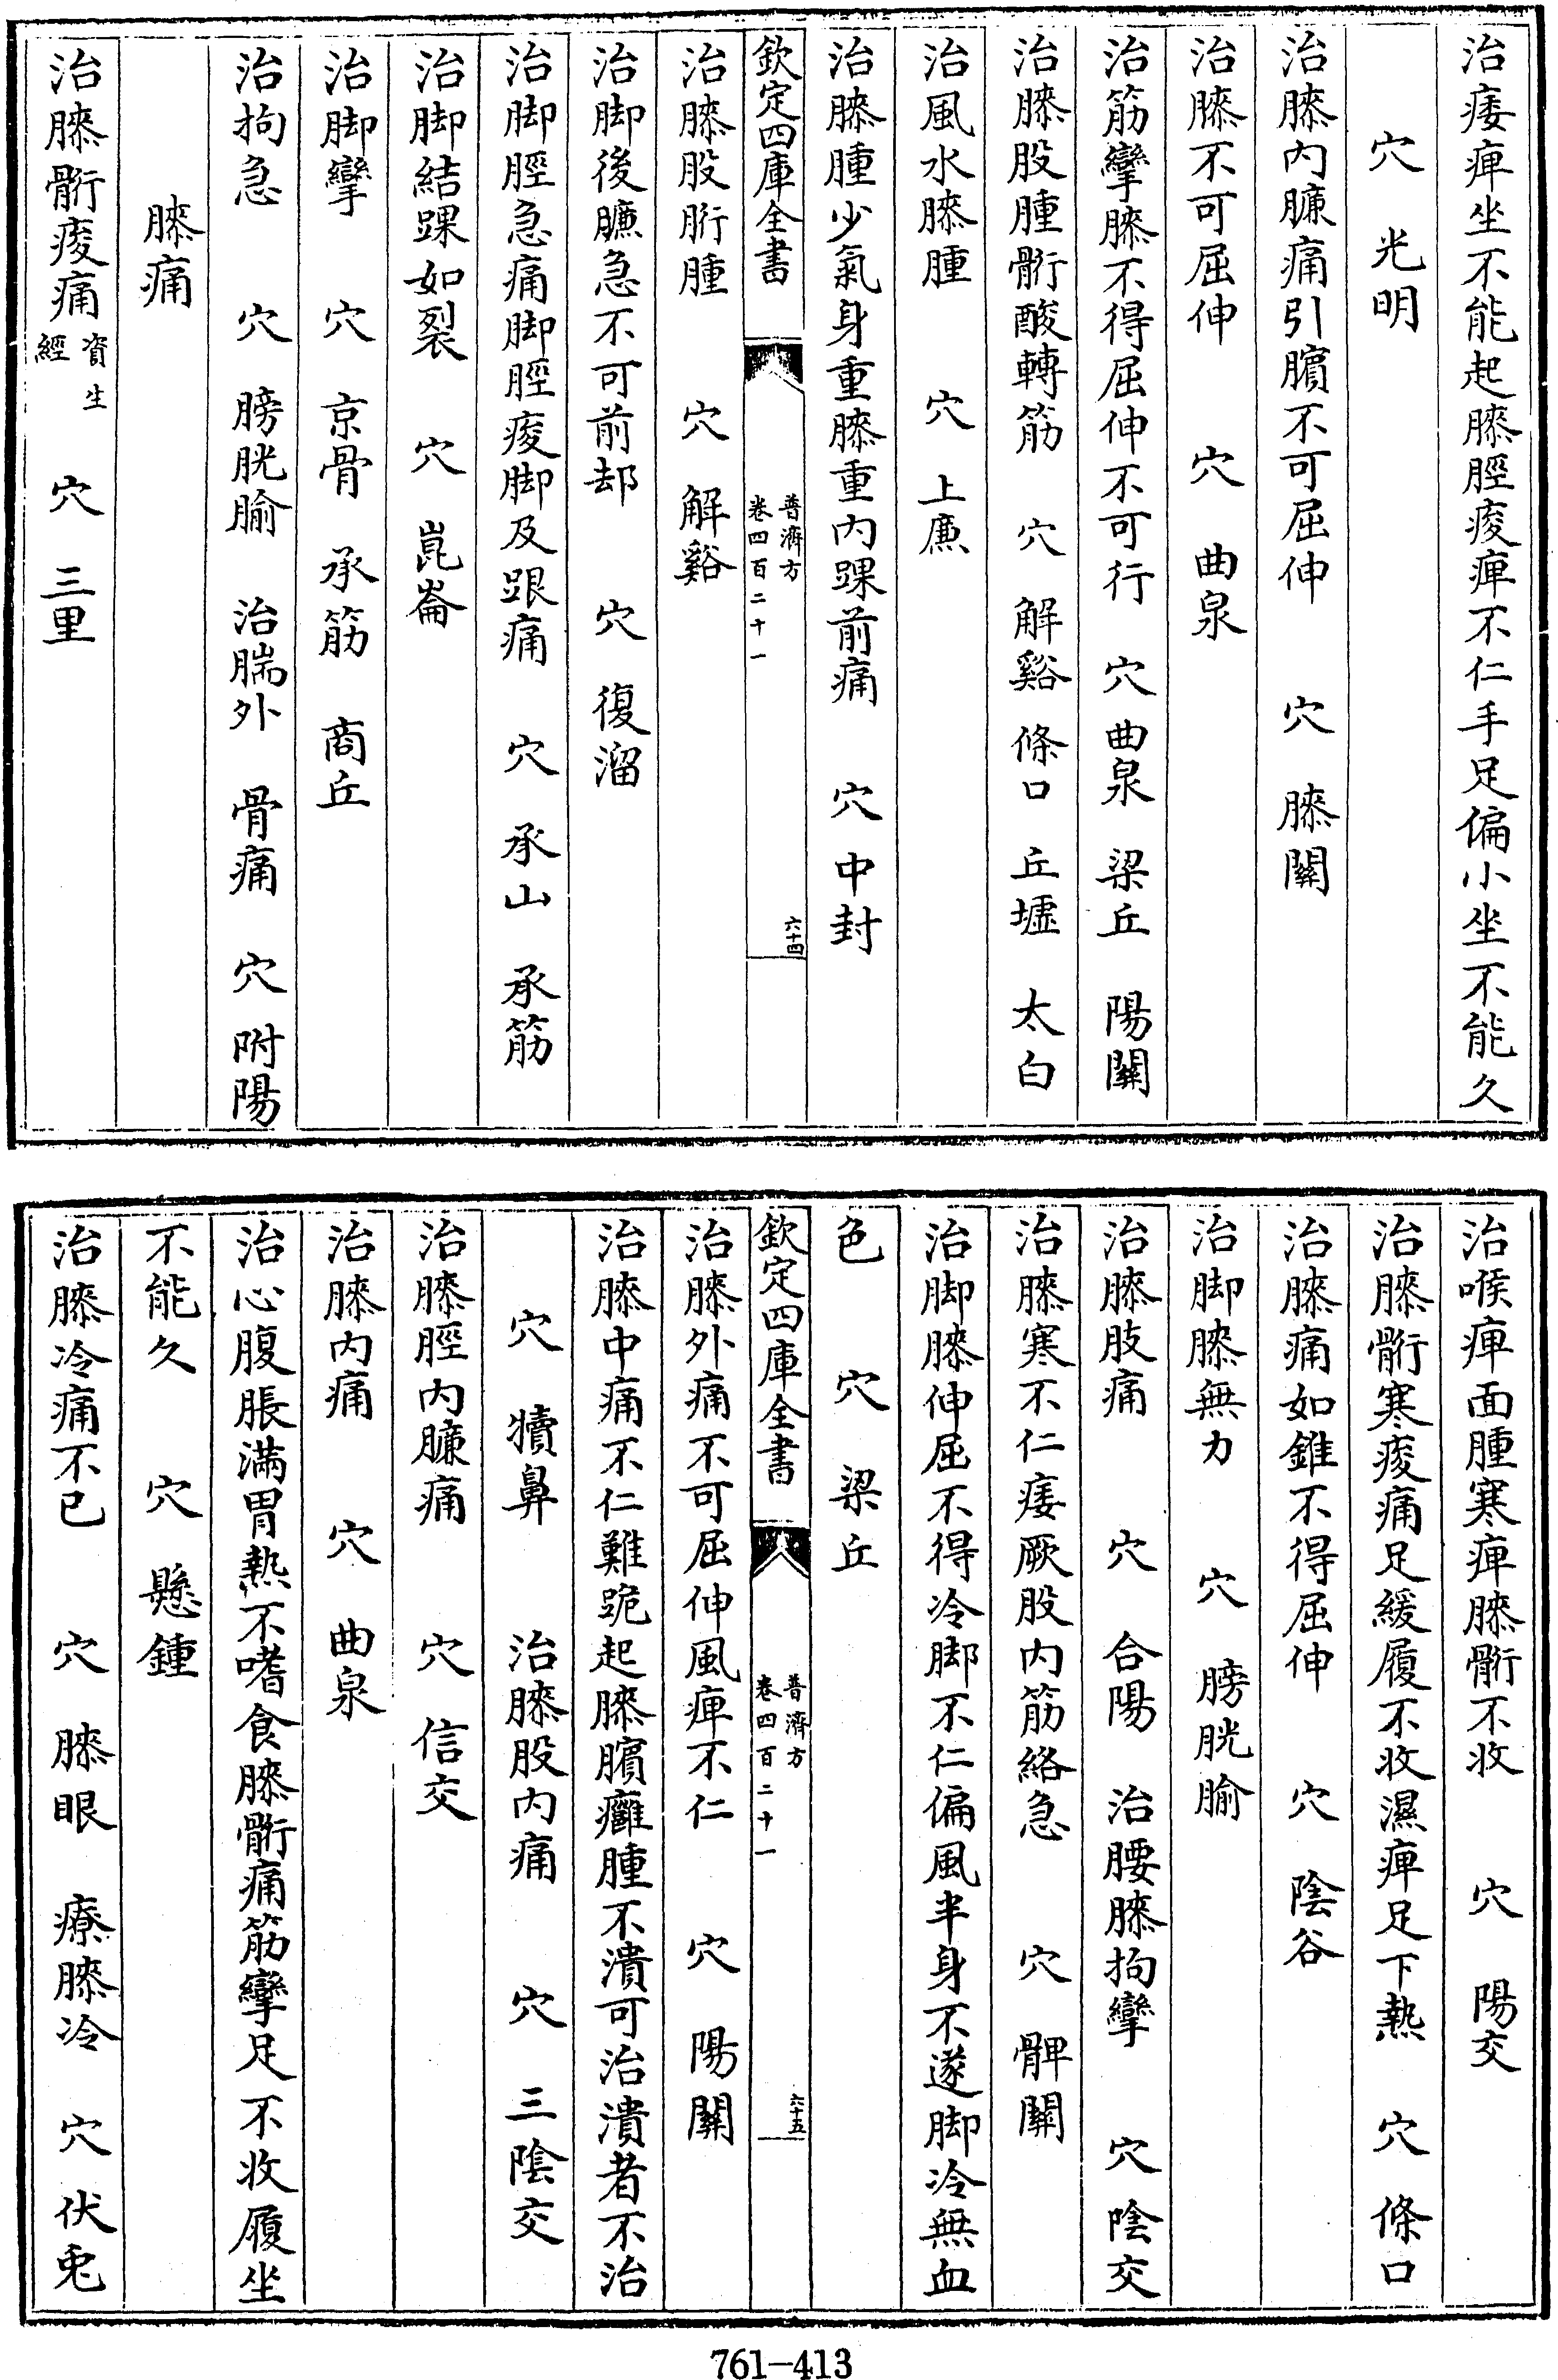 治痿痺坐不能起膝脛痠痺不仁手足偏小坐不能久
穴　光明
治膝内臁痛引臏不可屈伸　穴　膝關
治膝不可屈伸　穴　曲泉
治筋攣膝不得屈伸不可行　穴　曲泉　梁丘　陽關
治膝股腫䯒酸轉筋　穴　解谿　條口　丘墟　太白
治風水膝腫　穴　上廉
治膝腫少氣身重膝重内踝前痛　穴　中封
欽定四庫全書　普濟方　卷四百二十一　六十四
治膝股胻腫　穴　解谿
治脚後臁急不可前却　穴　復溜
治脚脛急痛脚脛痠脚及跟痛　穴　承山　承筋
治脚結踝如裂　穴　崑崙
治脚攣　穴　京骨　承筋　商丘
治拘急　穴　膀胱腧　治腨外　骨痛　穴　附陽
膝痛
治膝䯒痠痛資生經　穴　三里
治喉痺面腫寒痺膝䯒不收　穴　陽交
治膝䯒寒痠痛足緩履不收濕痺足下熱　穴　條口
治膝痛如錐不得屈伸　穴　陰谷
治脚膝無力　穴　膀胱腧
治膝肢痛　穴　合陽　治腰膝拘攣　穴　陰交
治膝寒不仁痿厥股内筋絡急　穴　髀關
治脚膝伸屈不得冷脚不仁偏風半身不遂脚冷無血
色　穴　梁丘
欽定四庫全書　普濟方　卷四百二十一　六十五
治膝外痛不可屈伸風痺不仁　穴　陽關
治膝中痛不仁難跪起膝臏癰腫不潰可治潰者不治
穴　犢鼻　治膝股内痛　穴　三陰交
治膝脛内臁痛　穴　信交
治膝内痛　穴　曲泉
治心腹脹滿胃熱不嗜食膝䯒痛筋攣足不收履坐
不能久　穴　懸鍾
治膝冷痛不已　穴　膝眼　療膝冷　穴　伏兎
761-413